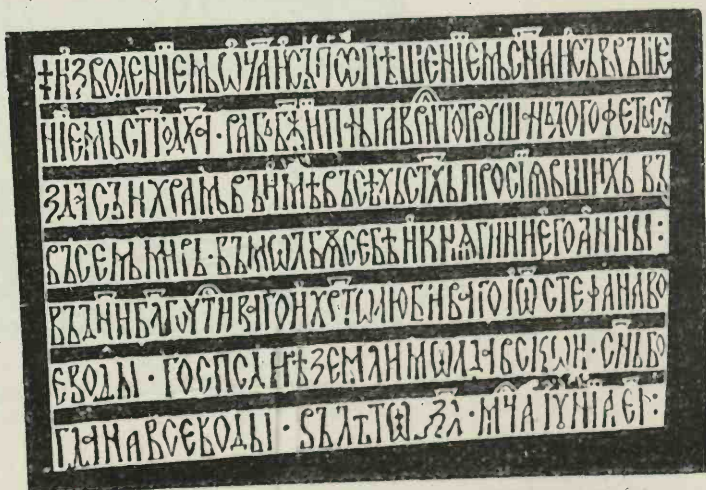 ‡ИЗВОЛЕНЇЕМЬѠЧАИСЪПОСПѢШЕНЇЕМЬСНАИСЪВРЪШЕ
НЇЕМЬСТГОДХА · РАБЪБЖЇИПАНЬГАВРИЛТОТРУШАНЬЛОГОФЕТЬСЪ
ЗДАСЪИХРАМЬВЪИМѢВЪСѢХЬСТХЬПРОСЇѦВШИХЬВЪ
ВЪСЕМЬМИРЬ · ВЪМѠЛБѪСЕБѢИКНѦГИНИЕГОАННЫ:
ВЪДНИБЛГОУТИВАГОИХРТѠЛЮБИВАГОІѠСТЕФАНАВО
ЕВОДЫ · ГОСПСДАИѢЗЕМЛИМѠЛДАВСКѠИ · СНЬБО
ГДАНАВСЕВОДЫ · ЅЪЛѢТѠ ҂ЗЛ · МЧАІУНЇАЕІ: